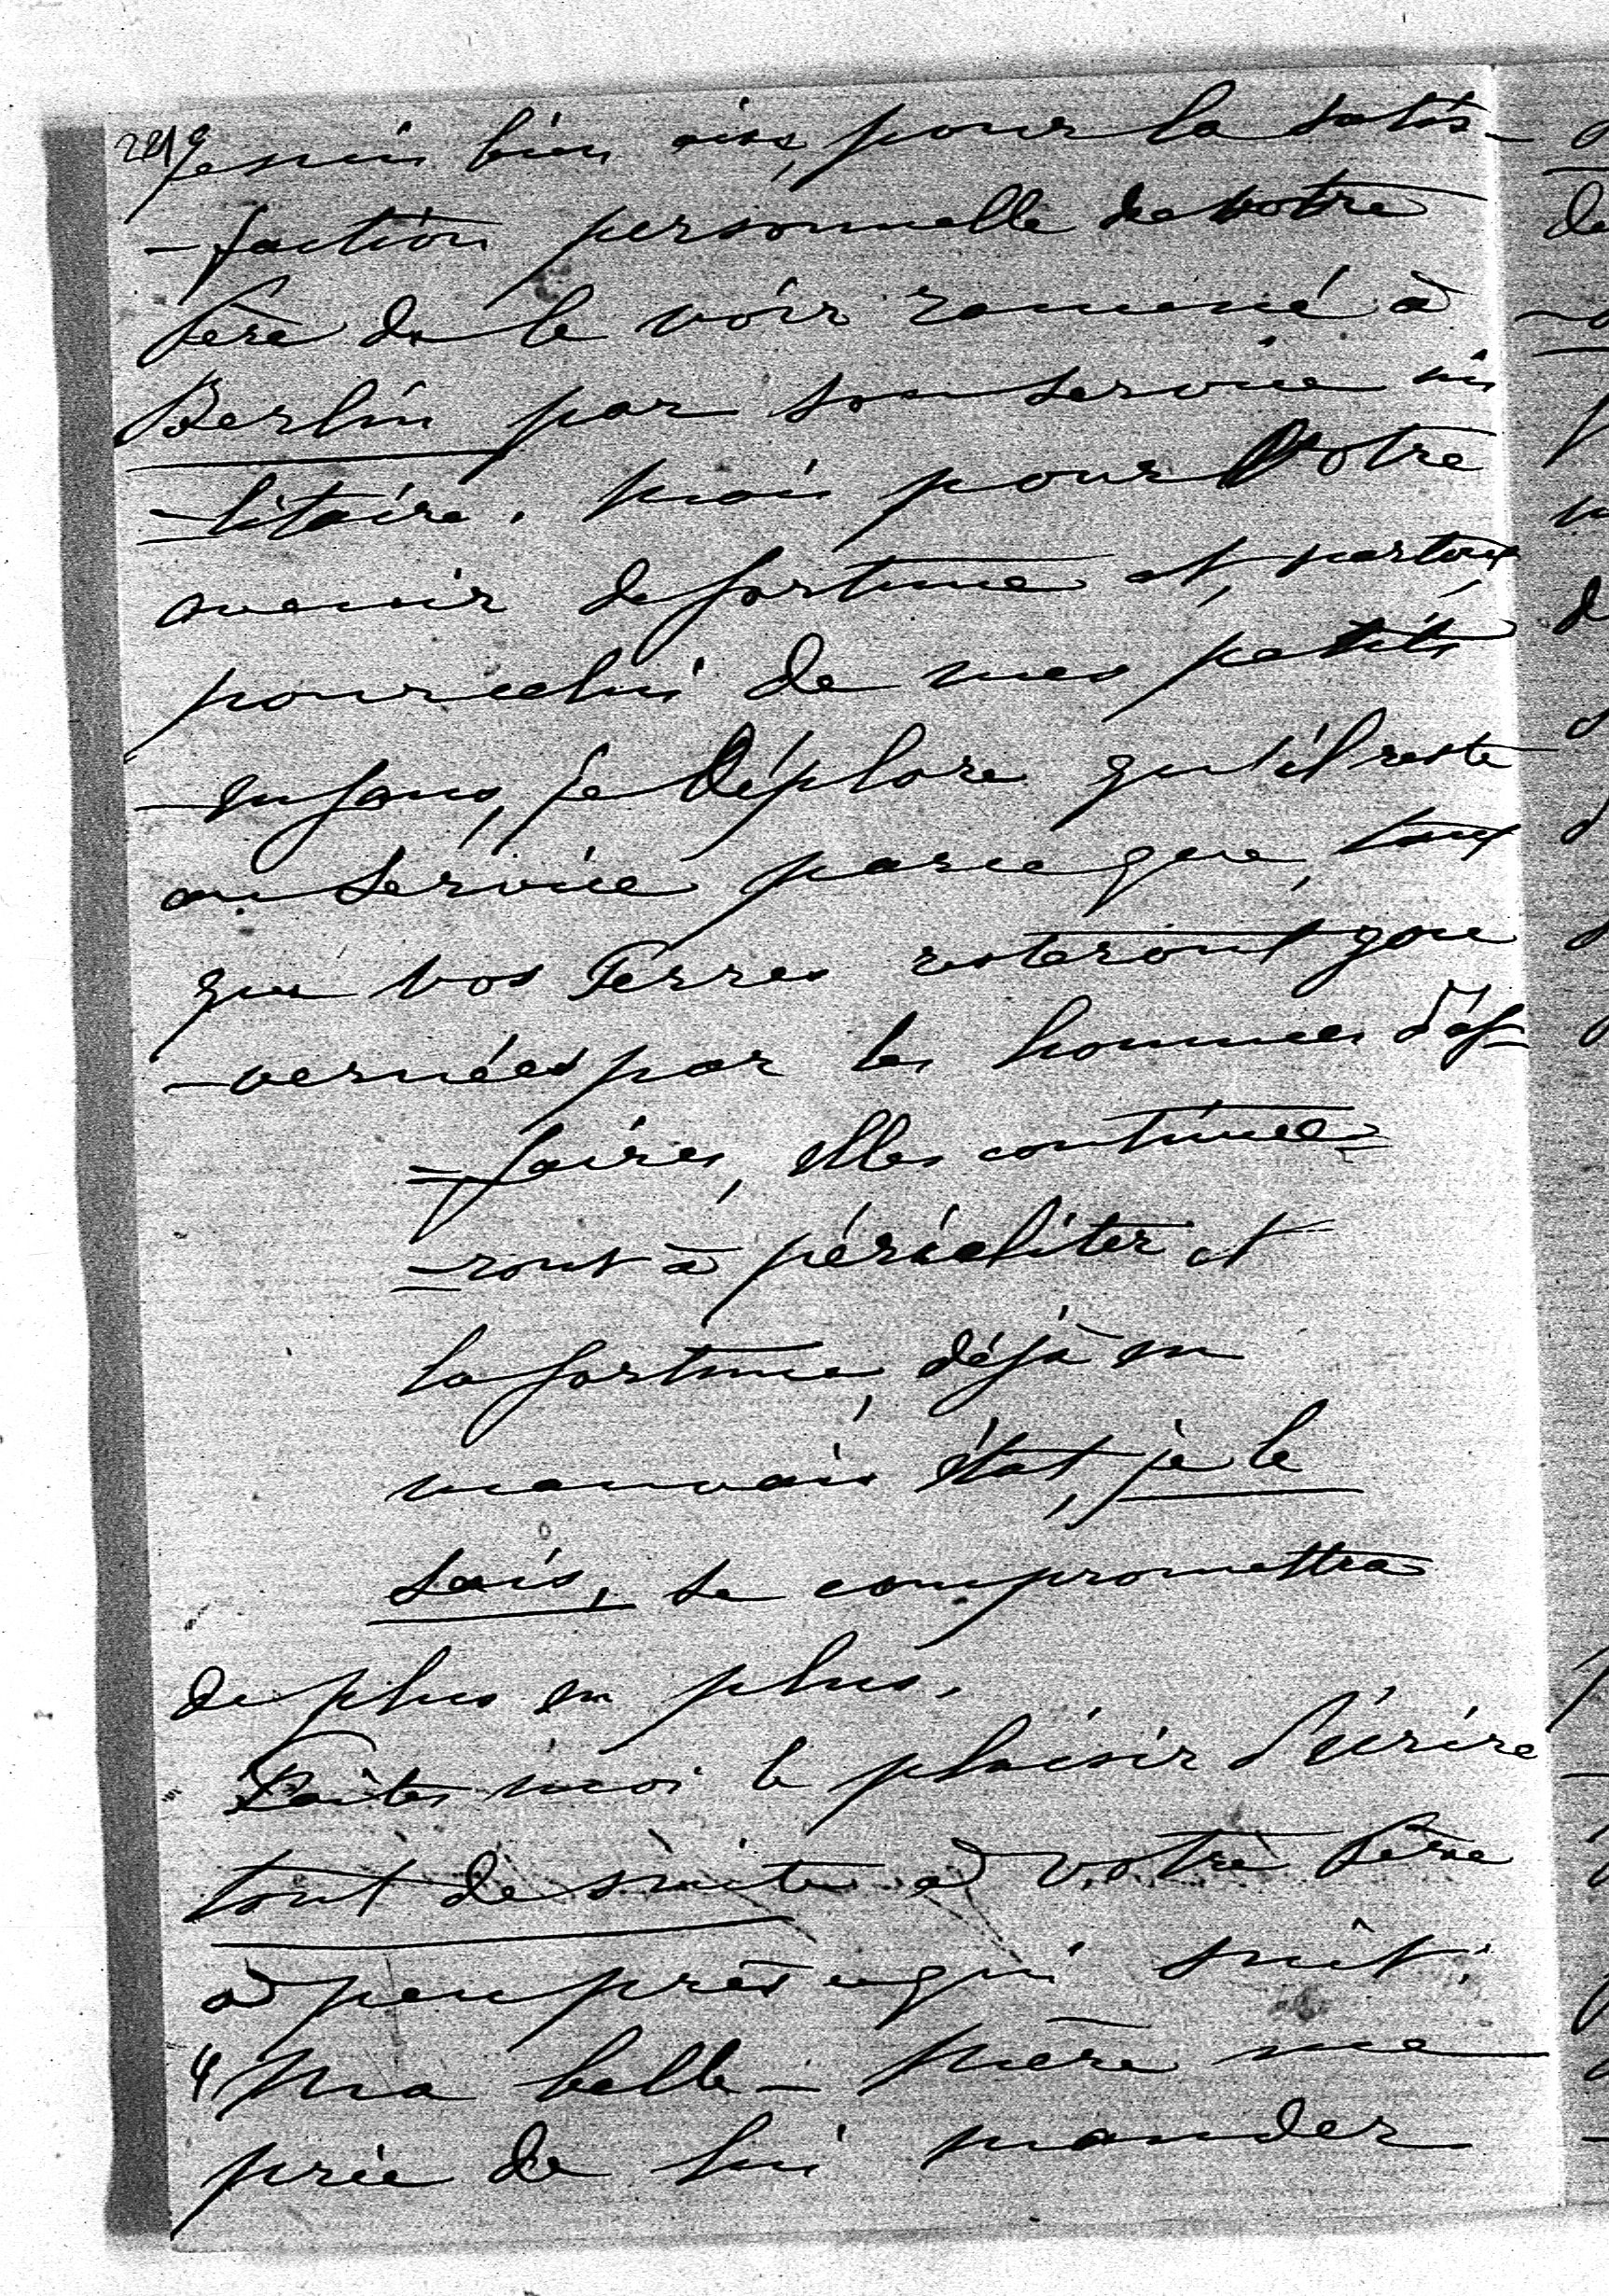 2219
Je suis bien aise, pour la satis-
-faction personnelle de votre
Père de le voir ramené à
Berlin par son service mi
-litaire. Mais pour Votre
avenir de fortune et, surtout,
pour celui de mes petits
-enfans, je déplore qu'il reste
au service parce que, tant
que vos Terres resteront gou
-vernées par les hommes d'af-
-faires, elles continue-
-ront à péricliter et
la fortune, déjà en
mauvais état, je le
sais, se compromettra
de plus en plus.
Faites moi le plaisir d'écrire
tout de suite à votre Père
à peu près ce qui suit:
"Ma belle-Mère me
prie de lui mander